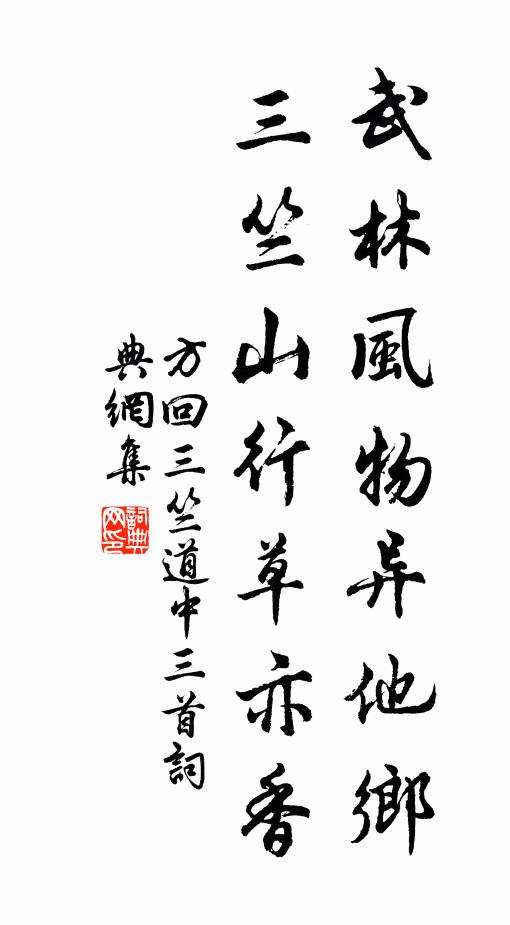 武林風物异他鄉
三竺山行草亦香
方回三竺道中三首詞
典網集
詞典
网印